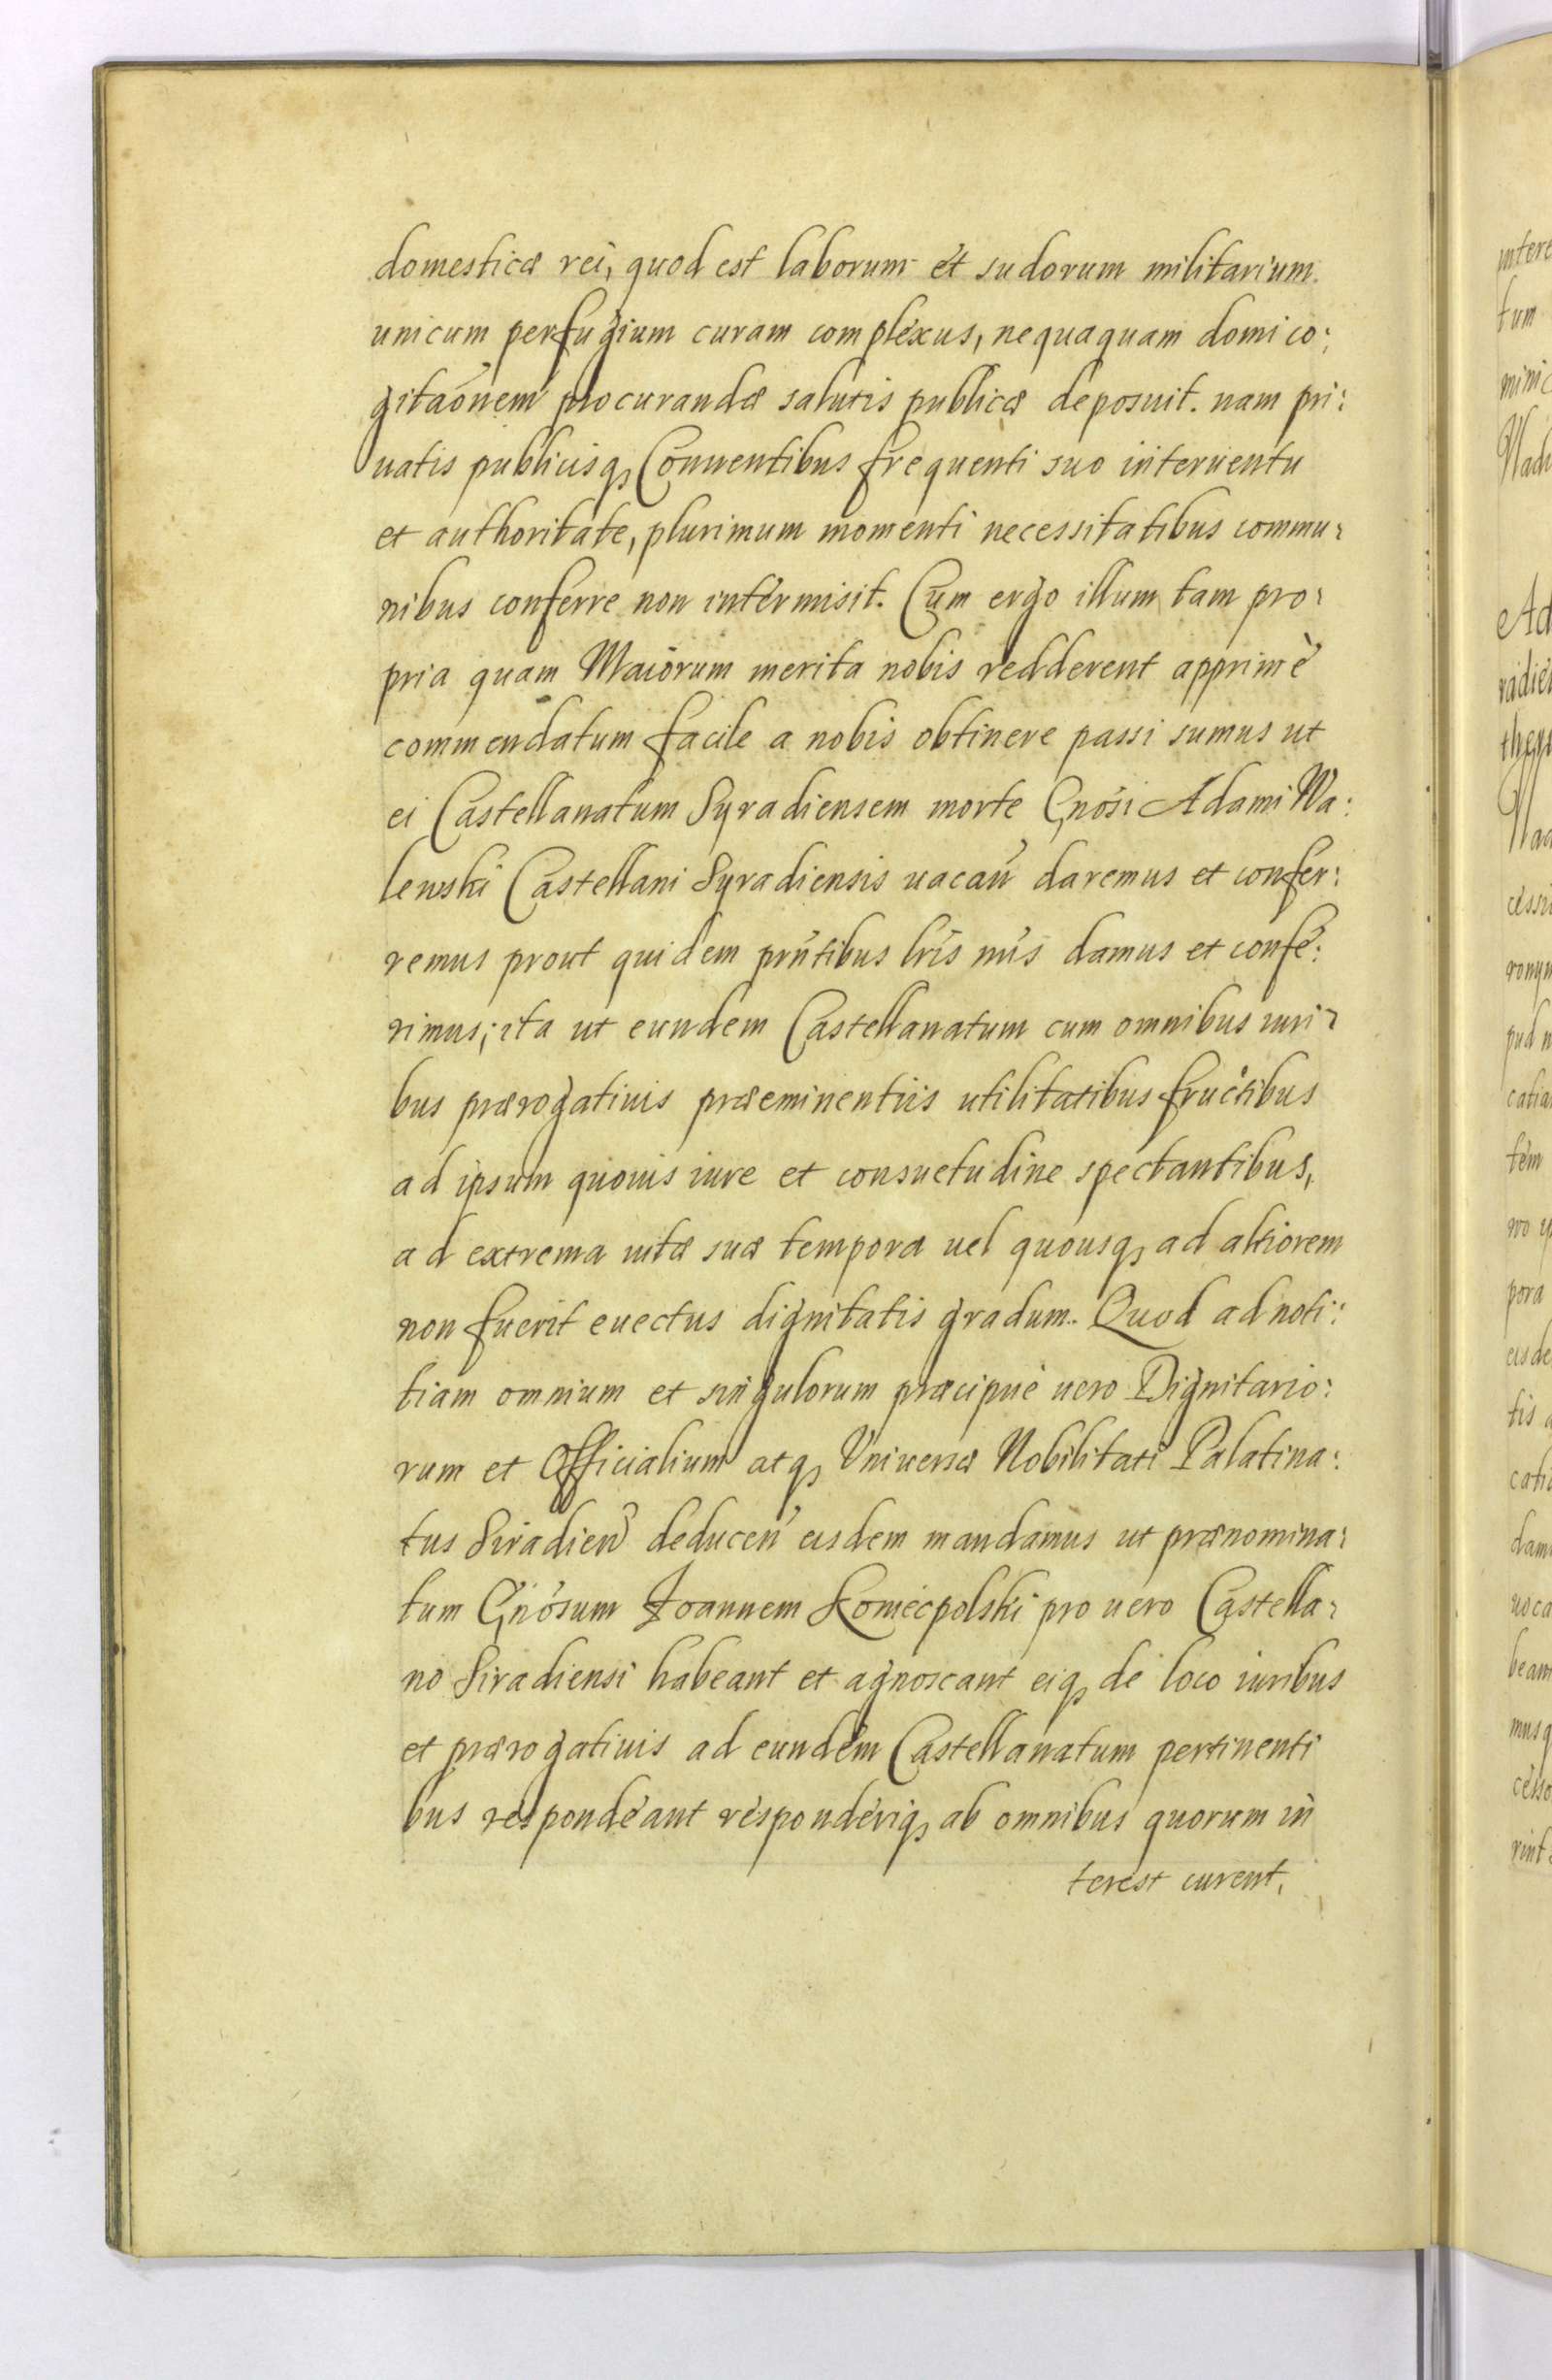 domesticæ rei, quod est laborum et sudorum militarium
unicum perfugium curam complexus, nequaquam domi co:
gitaõnem procurandæ salutis publicæ deposuit. nam pri:
uatis publicisq; Conuentibus frequenti suo interuentu
et authoritate, plurimum momenti necessitatibus commu:
nibus conferre non intermisit. Cum ergo illum tam pro:
pria quam Maiorum merita nobis redderent apprimè
commendatum facile a nobis obtinere passi sumus ut
ei Castellanatum Syradiensem morte Gnõsi Adami Wa:
lewski Castellani Syradiensis uacañ daremus et confer:
remus prout quidem prñtibus lrĩs nrĩs damus et confe:
rimus; ita ut eundem Castellanatum cum omnibus iuri:
bus prærogatiuis præeminentiis utilitatibus fructibus
ad ipsum quouis iure et consuetudine spectantibus,
ad extrema uitæ suæ tempora uel quousq; ad altiorem
non fuerit euectus dignitatis gradum. Quod ad noti:
tiam omnium et singulorum præcipuè uero Dignitario:
rum et Officialium atq; Vniuersæ Nobilitati Palatina:
tus Siradieñ deduceñ eisdem mandamus ut prænomina:
tum Gnõsum Joannem Koniecpolski pro uero Castella:
no Siradiensi habeant et agnoscant eiq; de loco iuribus
et prærogatiuis ad eundem Castellanatum pertinenti
bus respondeant responderiq; ab omnibus quorum in
terest curent,